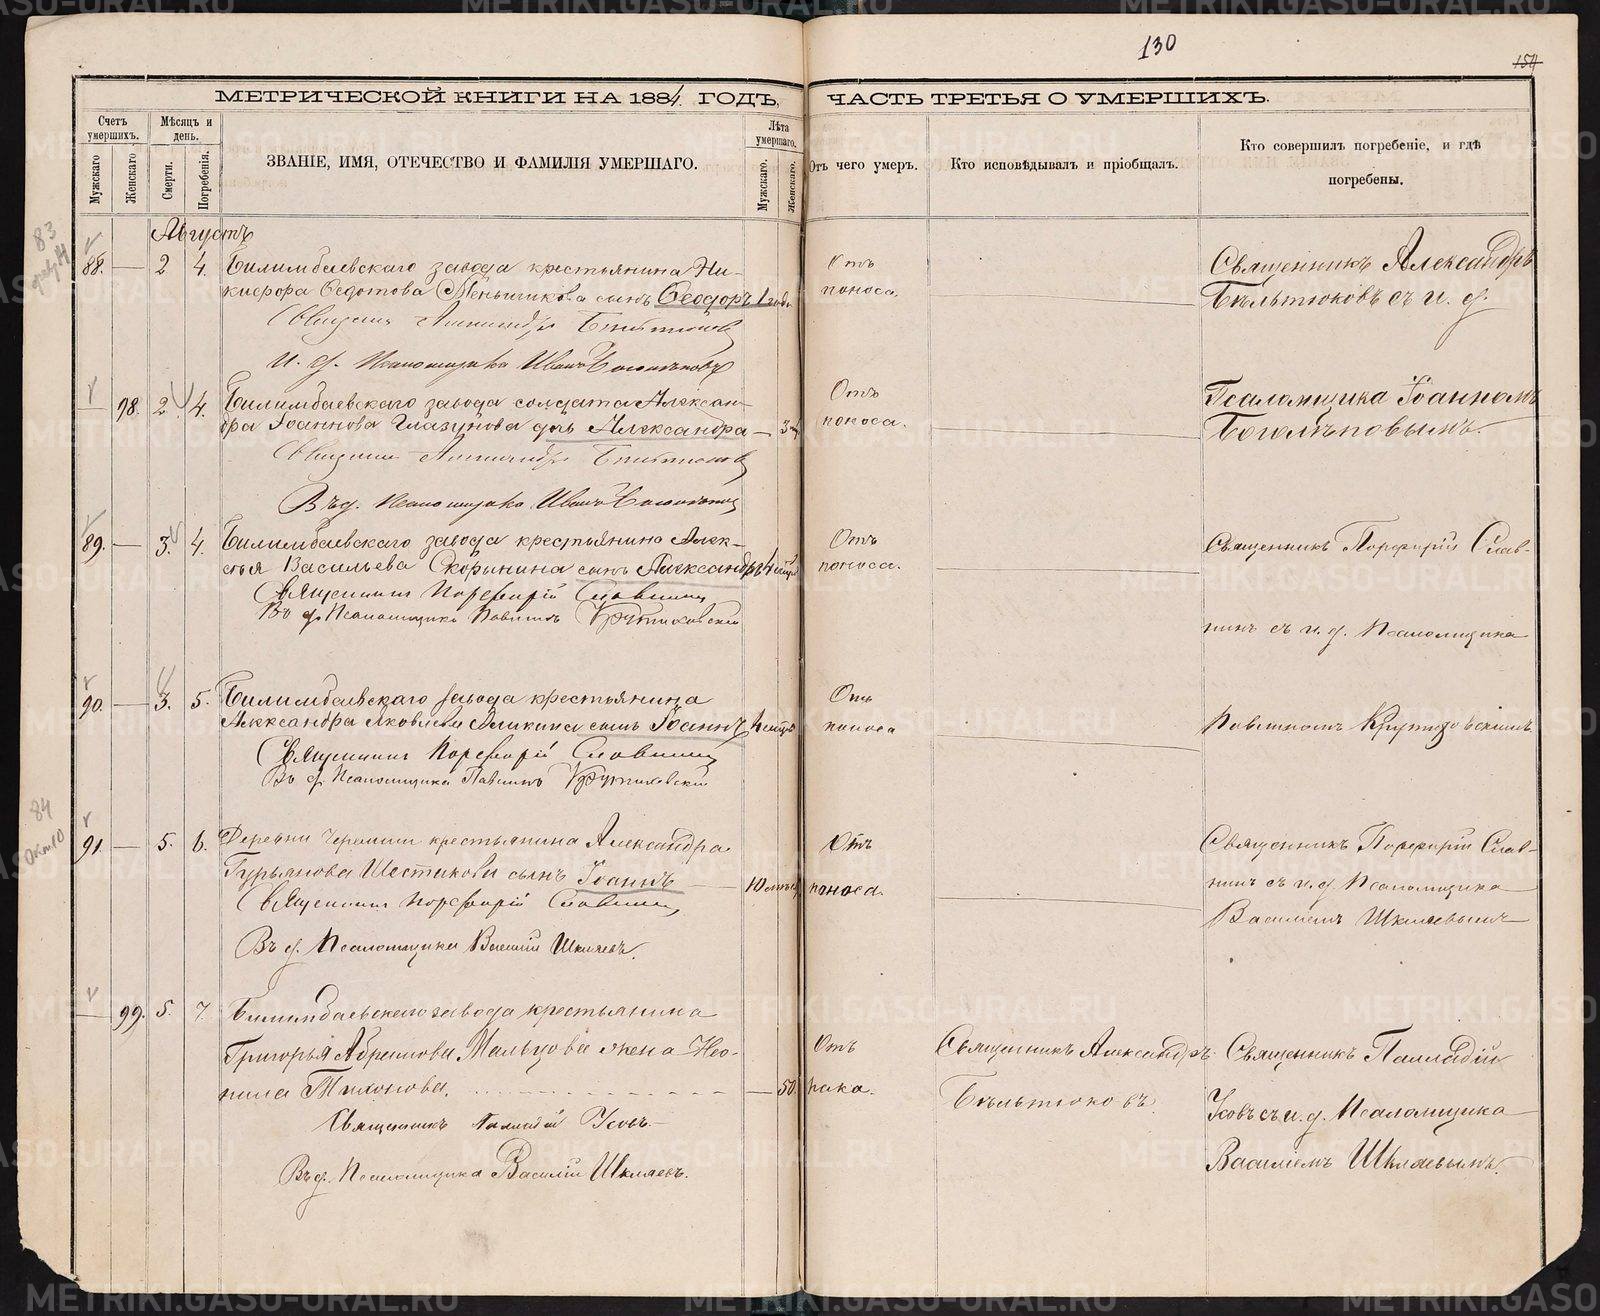 130
154
МЕТРИЧЕСКОЙ КНИГИ НА 1884 ГОДЪ, ЧАСТЬ ТРЕТЬЯ О УМЕРШИХЪ.
Счетъ умершихъ.
Мужскаго
Женскаго
Мѣсяцъ и день.
Смерти.
Погребенія.
ЗВАНІЕ, ИМЯ, ОТЕЧЕСТВО И ФАМИЛІЯ УМЕРШАГО.
Лѣта умершаго.
Мужскаго.
Женскаго.
Отъ чего умеръ.
Кто исповѣдывалъ и пріобщалъ.
Кто совершилъ погребеніе, и гдѣ
погребены.
Августъ
83
88. — 2 4. Билимбаевскаго завода крестьянина Ни-
кифора Федотова Меньшикова сынъ Ѳеодоръ 1 года
Отъ
поноса.
Священникъ Александръ
Бѣльтюковъ съ и. д.
Священникъ Александръ Бѣльтюковъ
И. д. Псаломщика Иванъ Боголѣповъ
98. 2 4. Билимбаевскаго завода солдата Алексан-
дра Іоаннова Глазунова дочь Александра — 3
Отъ
поноса.
Псаломщика Іоанномъ
Боголѣповымъ.
Священникъ Александръ Бѣльтюковъ
Въ д. Псаломщика Иванъ Боголѣповъ
89. — 3. 4. Билимбаевскаго завода крестьянина Алек-
сѣя Васильева Скорынина сынъ Александръ 4
Отъ
поноса.
Священникъ Порфирій Слав-
нинъ съ и. д. Псаломщика
Священникъ Порфирій Славнинъ
Въ д. Псаломщика Павлинъ Крутиховскій
90. — 3. 5. Билимбаевскаго завода крестьянина
Александра Яковлева сынъ Іоаннъ 4
Отъ
поноса
Павлиномъ Крутиховскимъ
Священникъ Порфирій Славнинъ
Въ д. Псаломщика Павлинъ Крутиховскій
84
Окт 10
91. — 5. 6. Деревни Черемши крестьянина Александра
Гурьянова Шестакова сынъ Іоаннъ — 10
Отъ
поноса.
Священникъ Порфирій Слав-
нинъ съ и. д. Псаломщика
Василіемъ Шкляевымъ
Священникъ Порфирій Славнинъ
Въ д. Псаломщика Василій Шкляевъ.
— 99. 5. 7. Билимбаевскаго завода крестьянина
Григорья Абрамова Мальцова жена Нео-
нила Тихонова. — 50.
Отъ
рака.
Священникъ Александръ
Бѣльтюковъ.
Священникъ Палладій
Усовъ съ и. д. Псаломщика
Василіемъ Шкляевымъ.
Священникъ Палладій Усовъ.
Въ д. Псаломщика Василій Шкляевъ.
METRIKI.GASO-URAL.RU